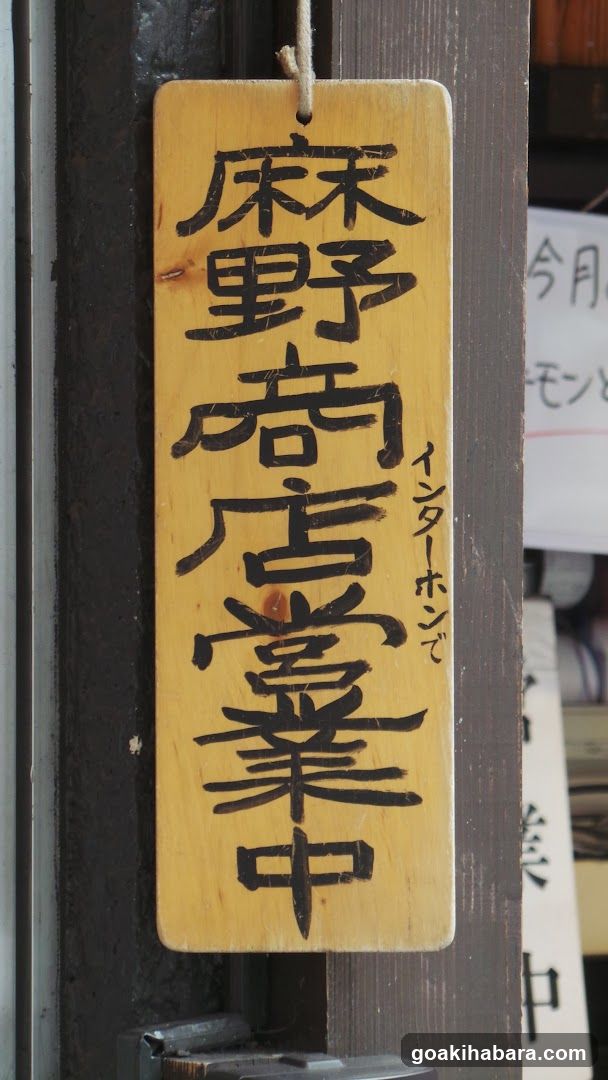 麻野商店営業中
インターホンで
今月
モンと
営業中
goakihabara.com